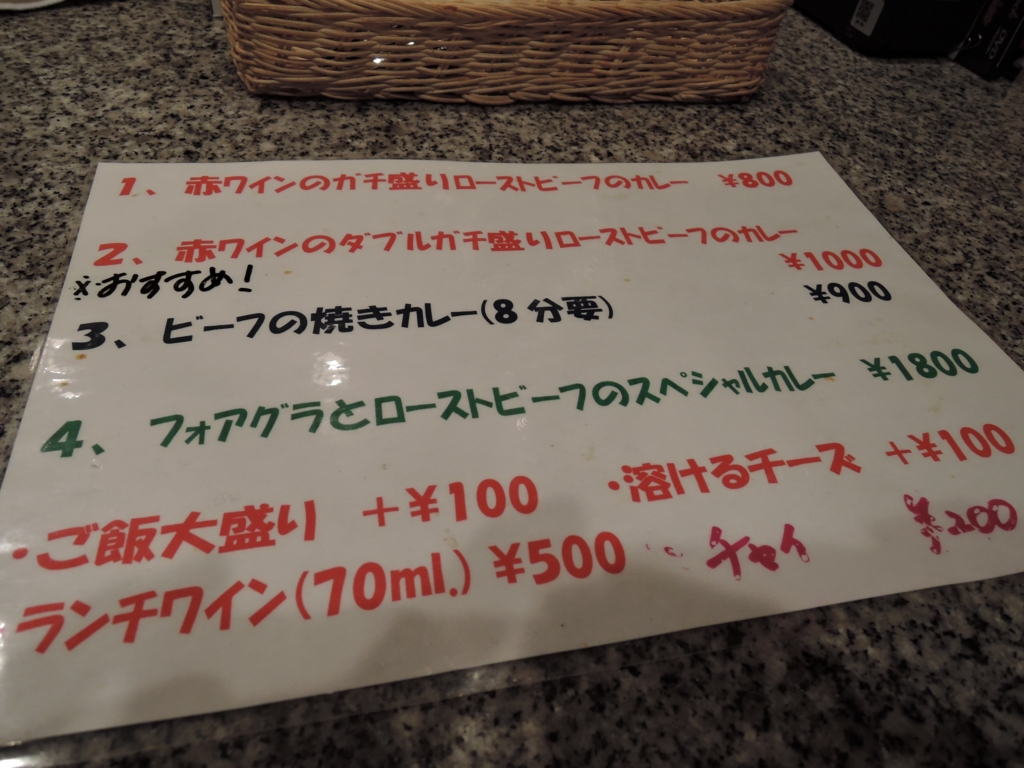 1、赤ワインのガチ盛りローストビーフのカレー ¥800
2、赤ワインのダブルガチ盛りローストビーフのカレー
¥1000
※おすすめ！
3、ビーフの焼きカレー(8分要) ¥900
4、フォアグラとローストビーフのスペシャルカレー ¥1800
・ご飯大盛り +¥100 ・溶けるチーズ +¥100
ランチワイン(70ml.) ¥500 チャイ ¥200